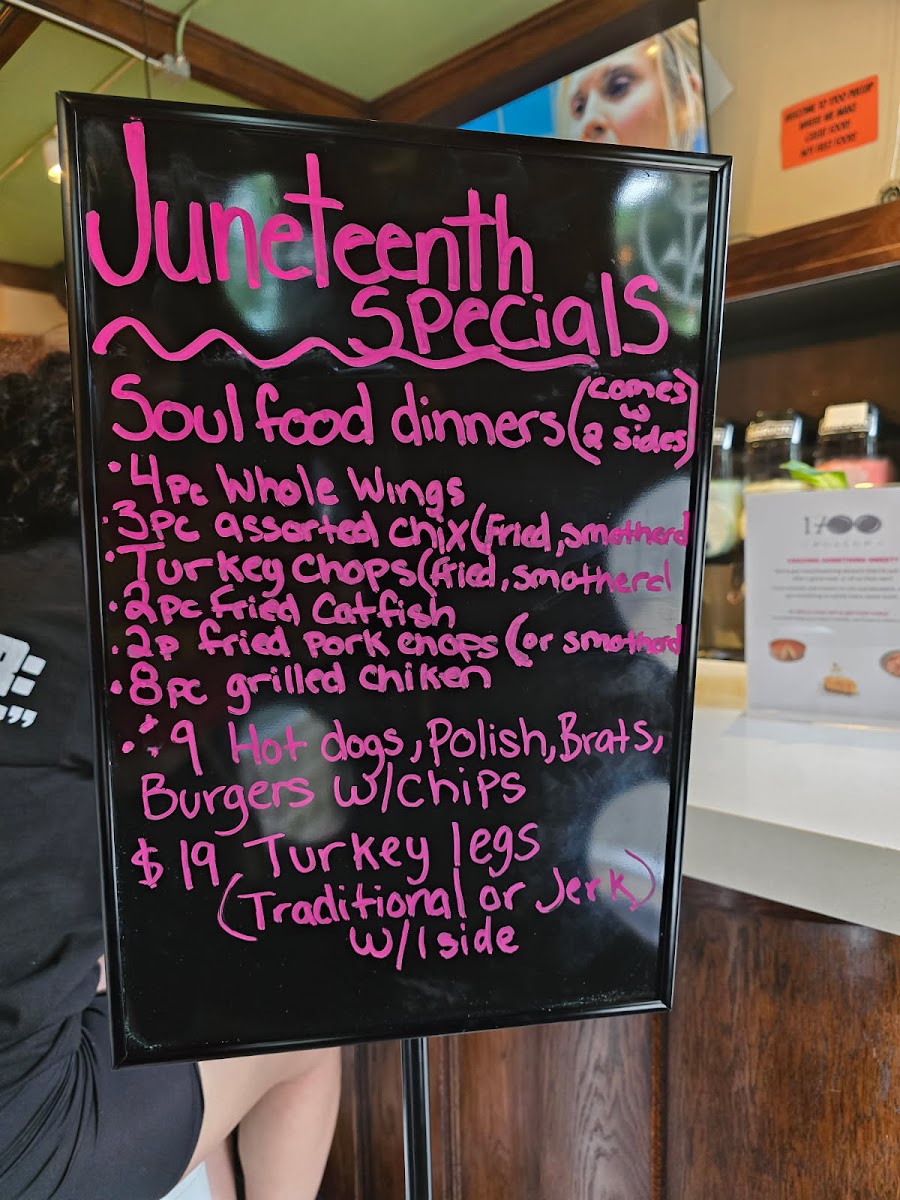 Juneteenth
Specials
Soul food dinners (comes
w
2 sides)
• 4pc Whole Wings
• 3pc assorted chix (Fried, smotherd
• Turkey Chops (fried, smotherd
• 2pc fried Catfish
• 2p fried Pork chops (or smotherd
• 8pc grilled chiken
9 Hot dogs, Polish, Brats,
Burgers w/chips
$19 Turkey legs
(Traditional or Jerk)
w/1 side
WHERE WE MAKE
GOOD FOOD
NOT FAST FOOD!